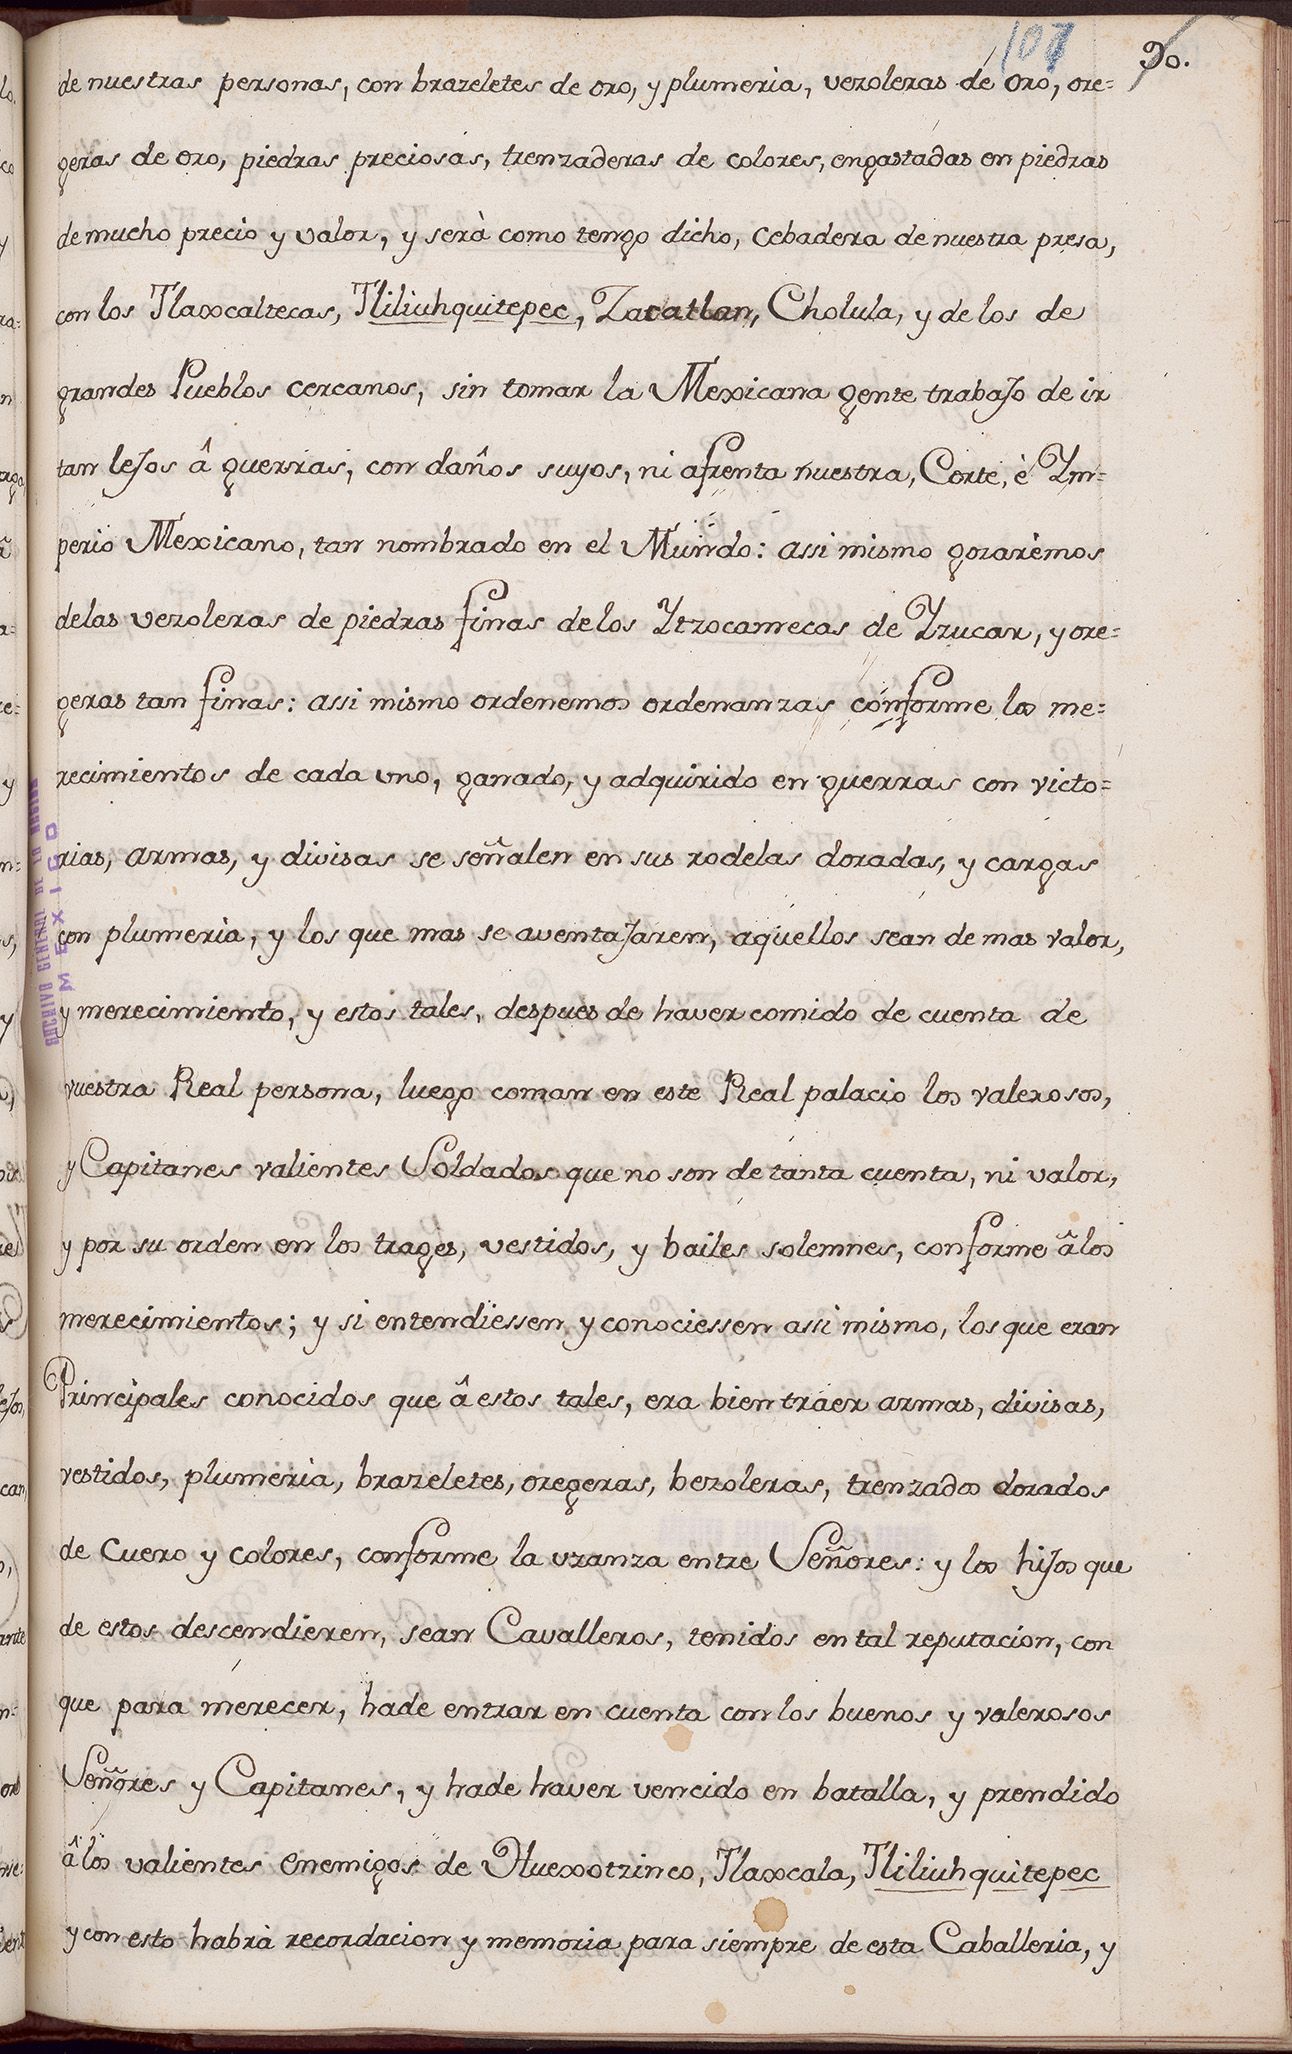 107
90.
de nuestras personas, con brazeletes de oro, y plumeria, vezoleras de oro, ore=
geras de oro, piedras preciosas, trenzaderas de colores, engastadas en piedras
de mucho precio y valor, y serà como tengo dicho, cebadera de nuestra presa,
con los Tlaxcaltecas, Tliliuhquitepec, Zacatlan, Cholula, y de los de
grandes Pueblos cercanos, sin tomar la Mexicana gente trabajo de ir
tan lejos â guerras, con daños suyos, ni afrenta nuestra, Corte, è Ym=
perio Mexicano, tan nombrado en el Mundo: assi mismo gozarèmos
delas vezoleras de piedras finas delos Ytzocamecas de Yzucar, y ore=
geras tan finas: assi mismo ordenemos ordenanzas conforme los me=
recimientos de cada uno, ganado, y adquirido en guerras con victo=
rias, armas, y divisas se señalen en sus rodelas doradas, y cargas
con plumeria, y los que mas se aventajaren, aquellos sean de mas valor,
y merecimiento, y estos tales, despues de haver comido de cuenta de
vuestra Real persona, luego coman en este Real palacio los valerosos,
y Capitanes valientes Soldados que no son de tanta cuenta, ni valor,
y por su orden en los trages, vestidos, y bailes solemnes, conforme â los
merecimientos; y si entendiessen y conociessen assi mismo, los que eran
Principales conocidos que â estos tales, era bien traer armas, divisas,
vestidos, plumeria, brazeletes, oregeras, bezoleras, trenzados dorados
de cuero y colores, conforme la uzanza entre Señores: y los hijos que
de estos descendieren, sean Cavalleros, tenidos en tal reputacion, con
que para merecer, hade entrar en cuenta con los buenos y valerosos
Señores y Capitanes, y hade haver vencido en batalla, y prendido
â los valientes enemigos de Huexotzinco, Tlaxcala, Tliliuhquitepec
y con esto habrà recordacion y memoria para siempre de esta Caballeria, y
ARCHIVO GENERAL DE LA NACION
MEXICO